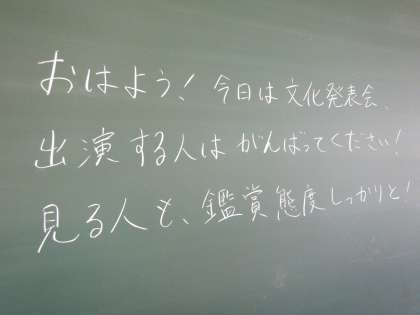 おはよう！今日は文化発表会、
出演する人はがんばってください！
見る人も、鑑賞態度しっかりと！